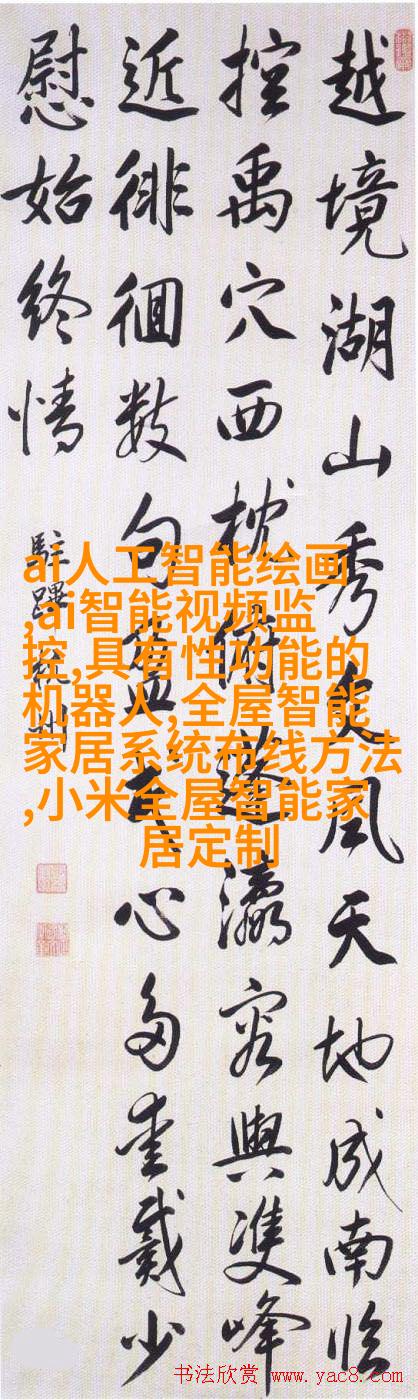 越境湖山秀文風天地成南臨
控禹穴西枕俯蓬瀛容與雙峰
近徘徊數句心多愛戴少
慰始終情
駐蹕杭州
ai人工智能绘画
,ai智能视频监
控,具有性功能的
机器人,全屋智能
家居系统布线方法
,小米全屋智能家
居定制
书法欣赏 www.yac8.com